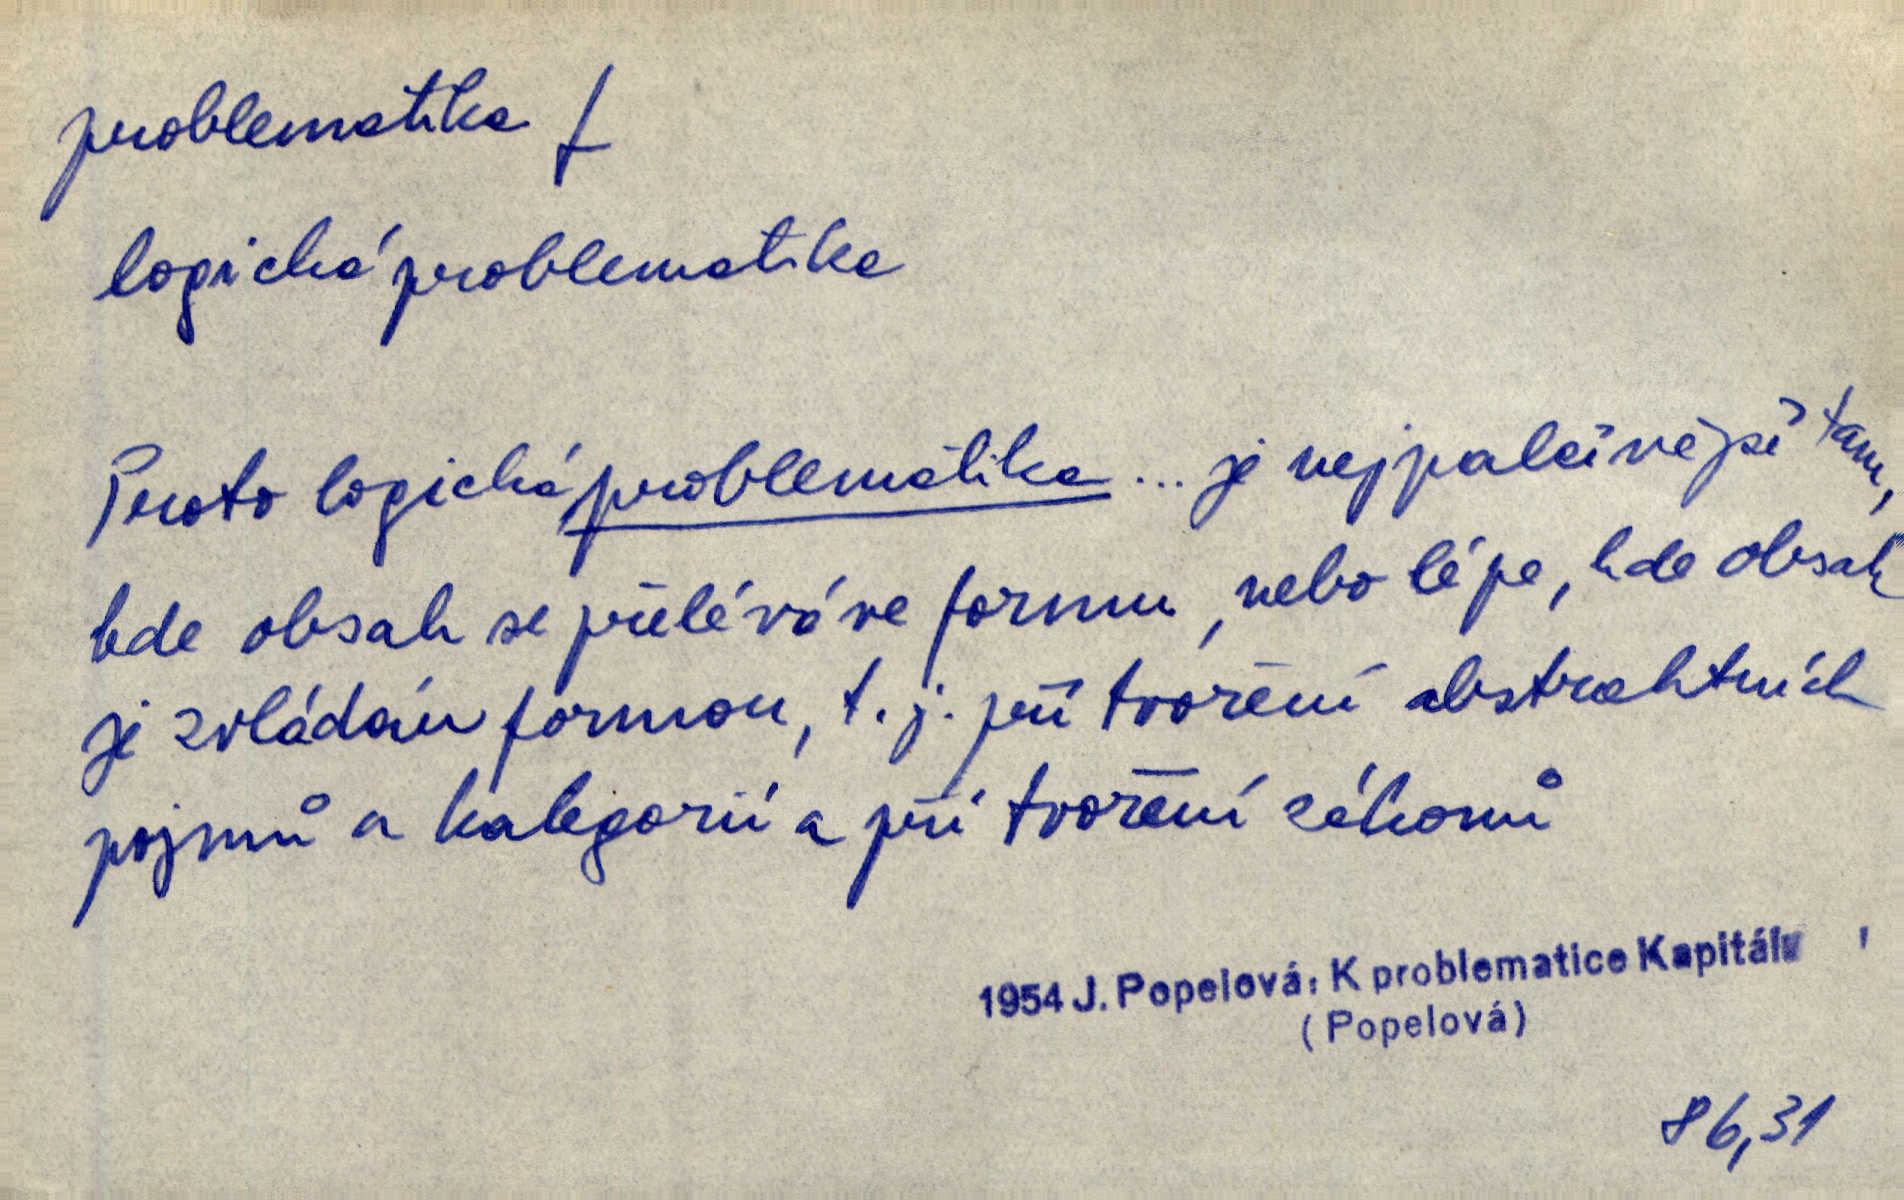 problematika f
logická problematika
Proto logická problematika ... je nejpalčivější tam,
kde obsah se přelévá ve formu, nebo lépe, kde obsah
je zvládán formou, t. j. při tvoření abstraktních
pojmů a kategorií a při tvoření zákonů
1954 J. Popelová: K problematice Kapitálu
(Popelová)
86,31